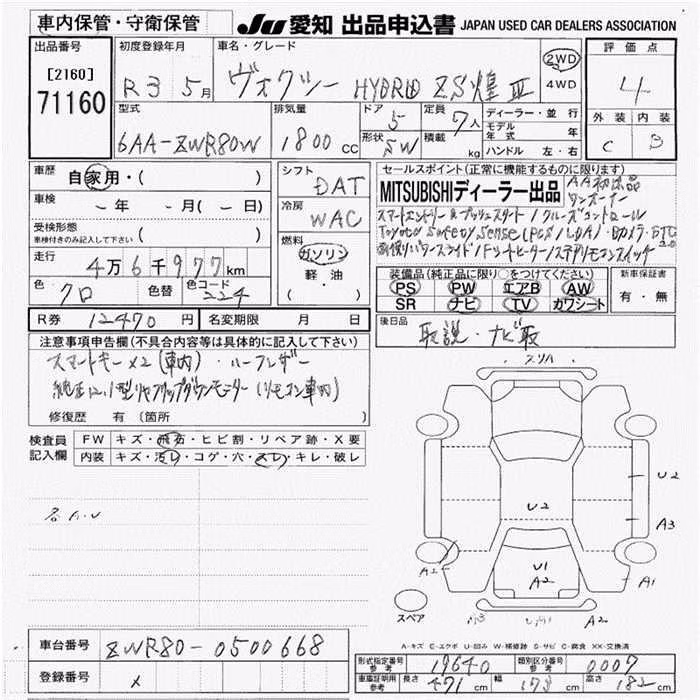 車内保管・守衛保管
JU 愛知 出品申込書 JAPAN USED CAR DEALERS ASSOCIATION
出品番号
[2160]
71160
初度登録年月
R3 5月
車名・グレード
ヴォクシー HYBRID ZS煌Ⅲ
2WD
4WD
評価点
4
外装 内装
C B
型式
6AA-ZWR80W
排気量
1800cc
ドア 5
形状 SW
定員 7人
積載 kg
ディーラー・並行
モデル年式 年
ハンドル 左・右
車歴 自家用・( )
車検 -年 -月(-日)
受検形態
車検付きのみ記入して下さい ( )
走行 4万6千977km
色 クロ 色替 色コード 224
シフト DAT
冷房 WAC
燃料
ガソリン
軽油
・( )
セールスポイント(正常に機能するものに限ります)
MITSUBISHIディーラー出品 AA初出品
ワンオーナー
スマートエントリー&プッシュスタート/クルーズコントロール
Toyota Safety Sense(PCS/LDA)・Bカメラ・ETC2.0
両側パワースライド/シートヒーター/ステアリモコンスイッチ
装備品(純正品に限り○をつけてください)
PS PW エアB AW
SR ナビ TV カワシート
新車保証書
有・無
R券 12470円 名変期限 月 日
後日品 取説・ナビ取
注意事項申告欄(不具合内容等は具体的に記入して下さい)
スマートキー×2(車内)・ハーフレザー
純正12.1型リヤフリップダウンモニター(リモコン車内)
修復歴 有(箇所 )
検査員記入欄
FW キズ・飛石・ヒビ割・リペア跡・X要
内装 キズ・汚レ・コゲ・穴・スレ・キレ・破レ
各A.U
スリハ
U2
U2
A3
U1
A2
A1
A2
スペア
A-キズ E-エクボ U-凹み W-補修跡 S-サビ C-腐食 XX-交換済
車台番号 ZWR80-0500668
登録番号 ×
形式指定番号 参考 19640 類別区分番号 参考 0007
車庫証明用 参考 長さ 471cm 幅 173cm 高さ 182cm